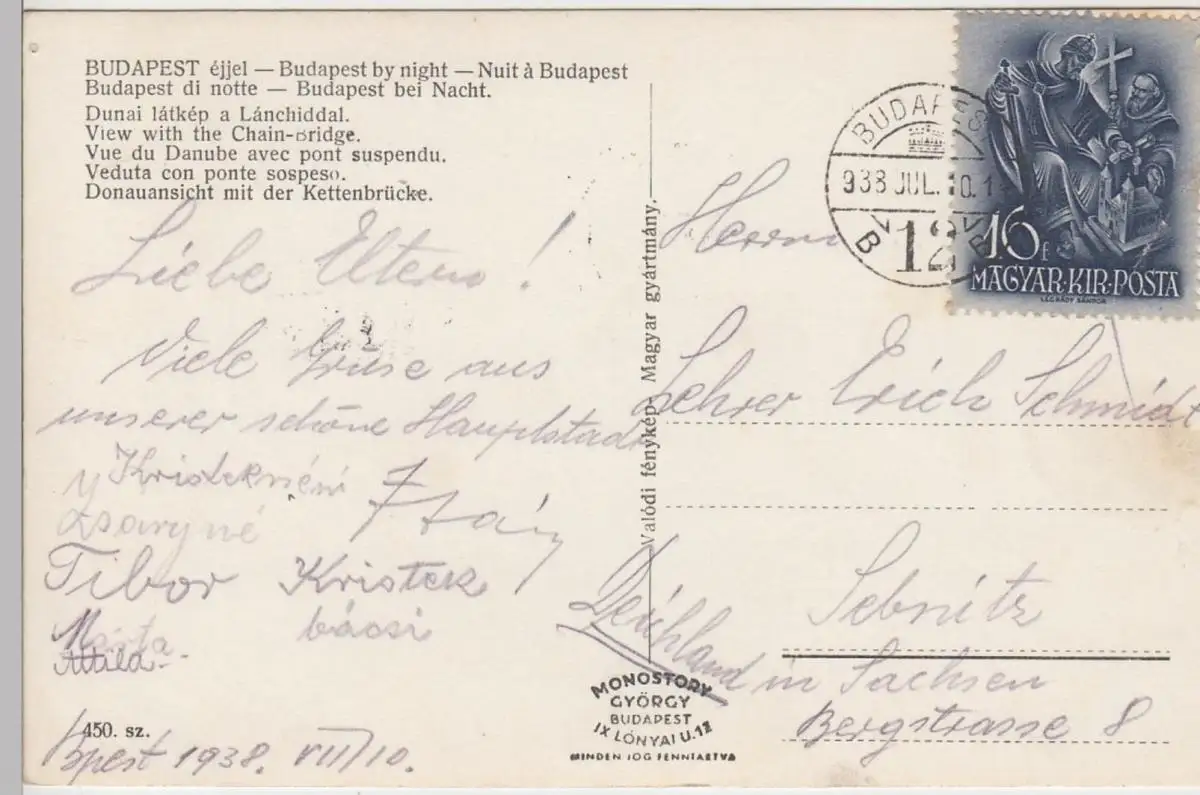 BUDAPEST éjjel — Budapest by night — Nuit à Budapest
Budapest di notte — Budapest bei Nacht.
Dunai látkép a Lánchiddal.
View with the Chain-Bridge.
Vue du Danube avec pont suspendu.
Veduta con ponte sospeso.
Donauansicht mit der Kettenbrücke.
Liebe Eltern!
Viele Grüse aus
unserer schöne Hauptstadt
Kristeknéni
Zsaryné
Tibor Kristek
bácsi
Márta
Attila
450. sz.
Bpest 1938. VII/10.
Valódi fénykép. Magyar gyártmány.
MONOSTORY
GYÖRGY
BUDAPEST
IX LÓNYAI U. 12
MINDEN JOG FENNTARTVA
BUDAPEST
938 JUL. 10. 1
12
16 f
MAGYAR·KIR·POSTA
LEGRÁDY SÁNDOR
Herrn
Lehrer Erich Schmidt
Sebnitz
in Sachsen
Bergstrasse 8